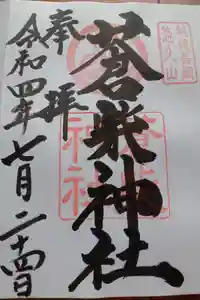 奉拝
蒼柴神社
令和四年七月二十四日
蒼柴神社